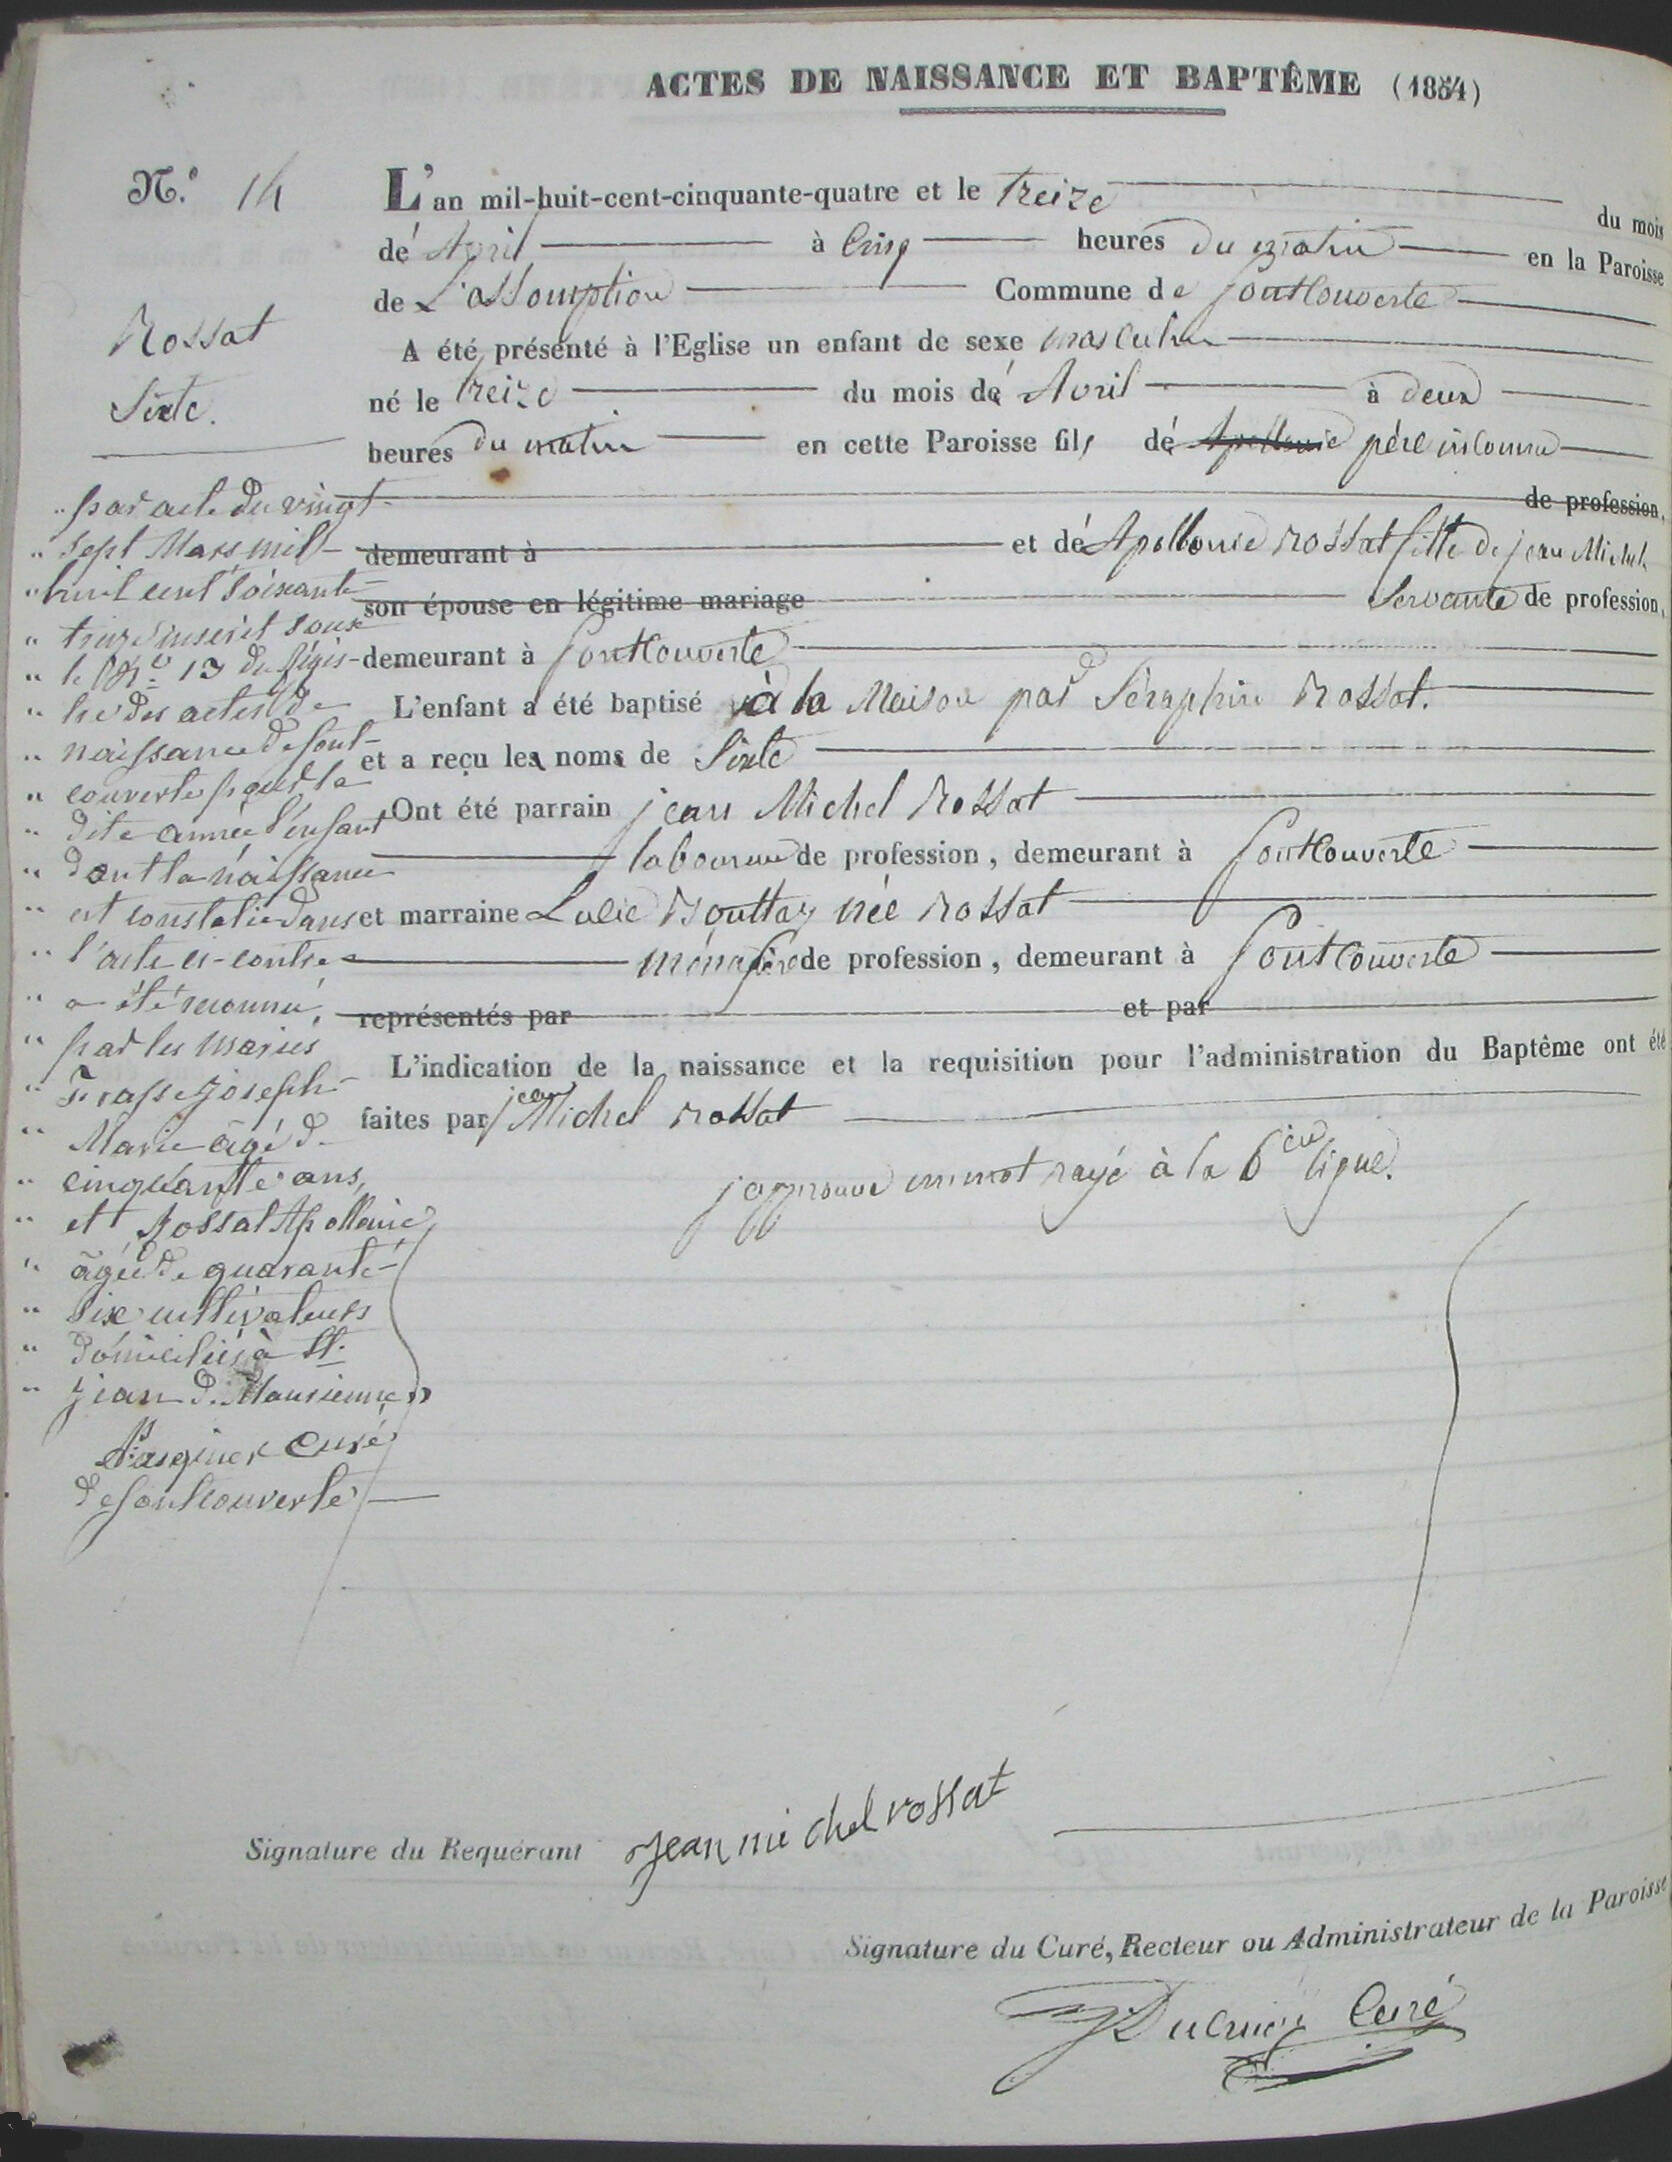 ACTES DE NAISSANCE ET BAPTÊME (1854)
N.° 14
Rossat
Sixte.
L'an mil-huit-cent-cinquante-quatre et le treize du mois
de Avril à cinq heures du matin en la Paroisse
de L'assomption Commune de fontcouverte
A été présenté à l'Eglise un enfant de sexe masculin
né le treize du mois de Avril à deux
heures du matin en cette Paroisse fils de Apollonie père inconnu
de profession,
demeurant à et de Apollonie Rossat fille de jean Michel
son épouse en légitime mariage Servante de profession,
demeurant à fontcouverte
L'enfant a été baptisé à la Maison par Séraphin Rossat.
et a reçu les noms de Sixte
Ont été parrain jean Michel Rossat
laboureur de profession, demeurant à fontcouverte
et marraine Lucie Bouttaz née Rossat
ménagère de profession, demeurant à fontcouverte
représentés par et par
L'indication de la naissance et la requisition pour l'administration du Baptême ont été
faites par jean Michel Rossat
japprouve un mot rayé à la 6eme ligne.
" par acte du vingt-
" sept Mars mil-
" huit cent soixante-
" treize inscrit sous
" le N.° 13 du régis-
" tre des actes de
" naissance de font-
" couverte pour la
" dite année l'enfant
" dont la naissance
" est constatée dans
" l'acte ci-contre
" a été reconnu,
" par les mariés
" Frasse Joseph-
" Marie âgé de
" cinquante ans,
" et Rossat Apollonie
" âgée de quarante-
" six cultivateurs
" domiciliés à St.
" Jean de Maurienne "
curé
de fontcouverte
Signature du Requérant jean mi chel rossat
Signature du Curé, Recteur ou Administrateur de la Paroisse
Curé